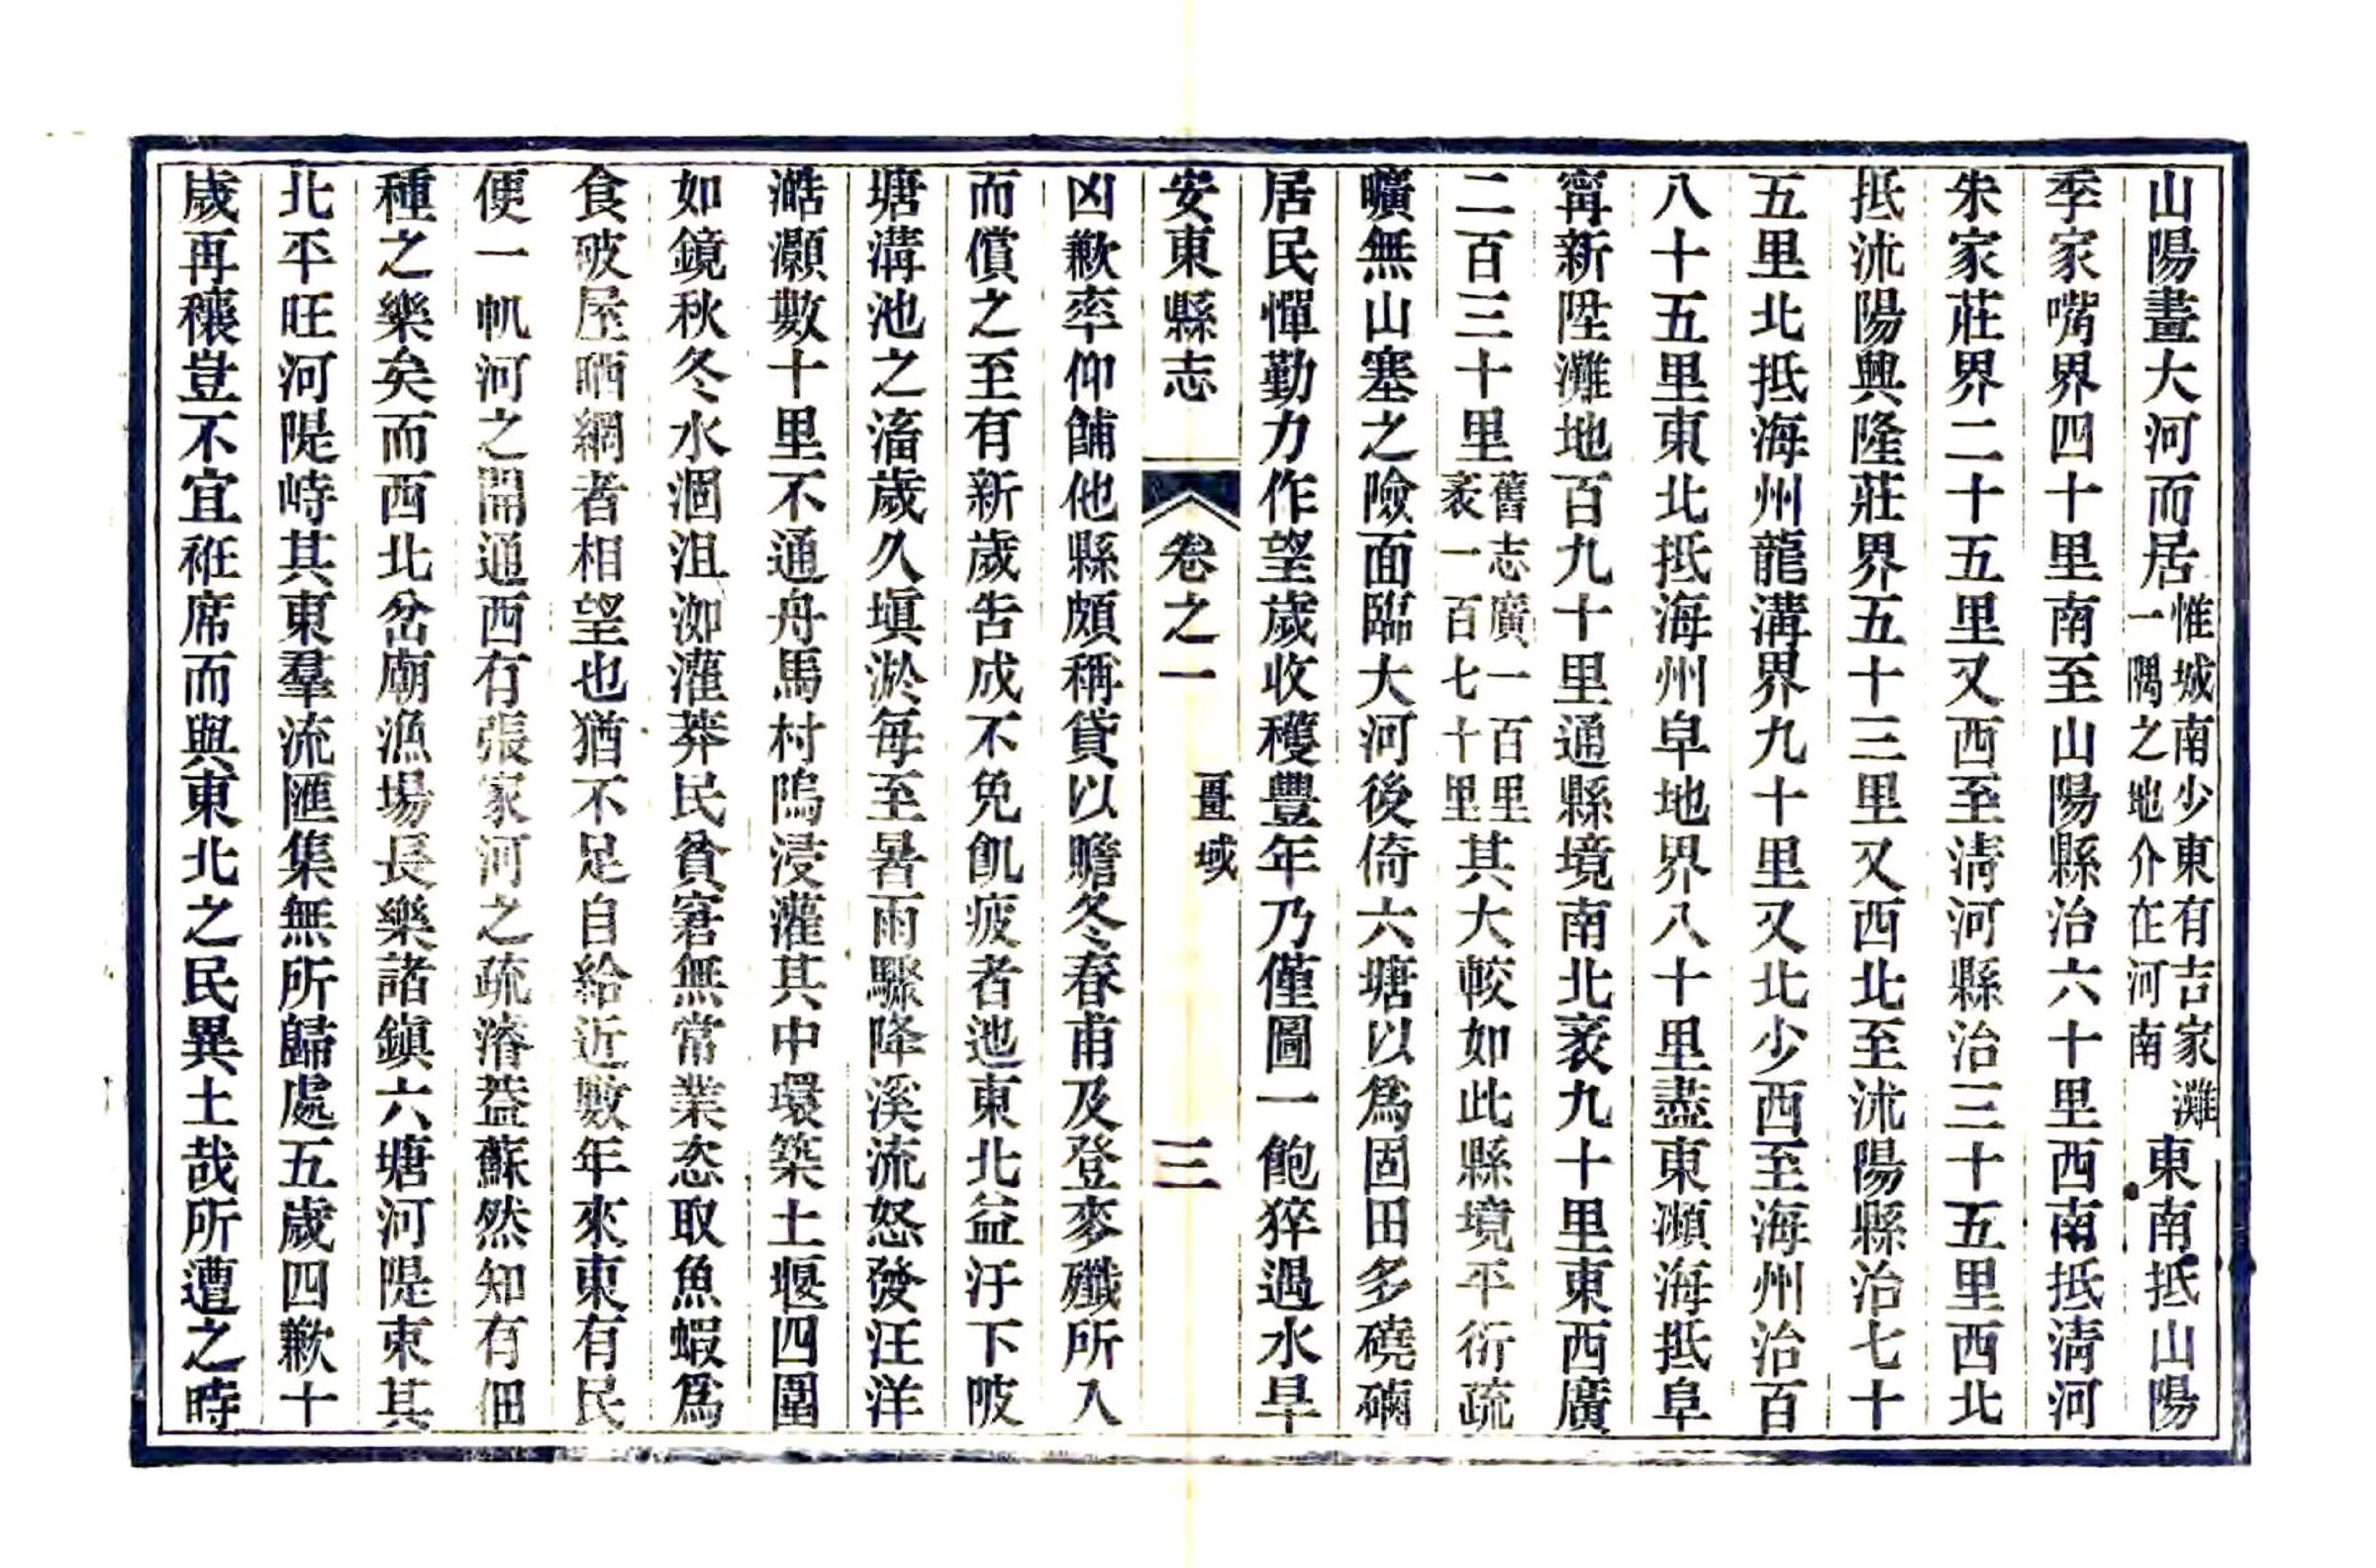 山陽畫大河而居惟城南少東有吉家灘一隅之地介在河南東南抵山陽
季家嘴界四十里南至山陽縣治六十里西南抵淸河
朱家莊界二十五里又西至淸河縣治三十五里西北
抵沭陽興隆莊界五十三里又西北至沭陽縣治七十
五里北抵海州龍溝界九十里又北少西至海州治百
八十五里東北抵海州阜地界八十里盡東瀕海抵阜
甯新陞灘地百九十里通縣境南北袤九十里東西廣
二百三十里舊志廣一百里袤一百七十里其大較如此縣境平衍疏
曠無山塞之險面臨大河後倚六塘以爲固田多磽确
居民憚勤力作望歲收穫豐年乃僅圖一飽猝遇水旱
安東縣志 卷之一 畺域 三
凶歉率仰餔他縣頗稱貸以贍冬春甫及登麥殲所入
而償之至有新歲告成不免飢疲者迆東北益汙下陂
塘溝池之瀦歲久塡淤每至暑雨驟降溪流怒發汪洋
澔灝數十里不通舟馬村隖浸灌其中環築土堰四圍
如鏡秋冬水涸沮洳灌莽民貧窘無常業恣取魚蝦爲
食破屋晒網者相望也猶不足自給近數年來東有民
便一帆河之開通西有張家河之疏濬葢蘇然知有佃
種之樂矣而西北岔廟漁場長樂諸鎭六塘河隄束其
北平旺河隄峙其東羣流匯集無所歸處五歲四歉十
歲再穰豈不宜袵席而與東北之民異土哉所遭之時